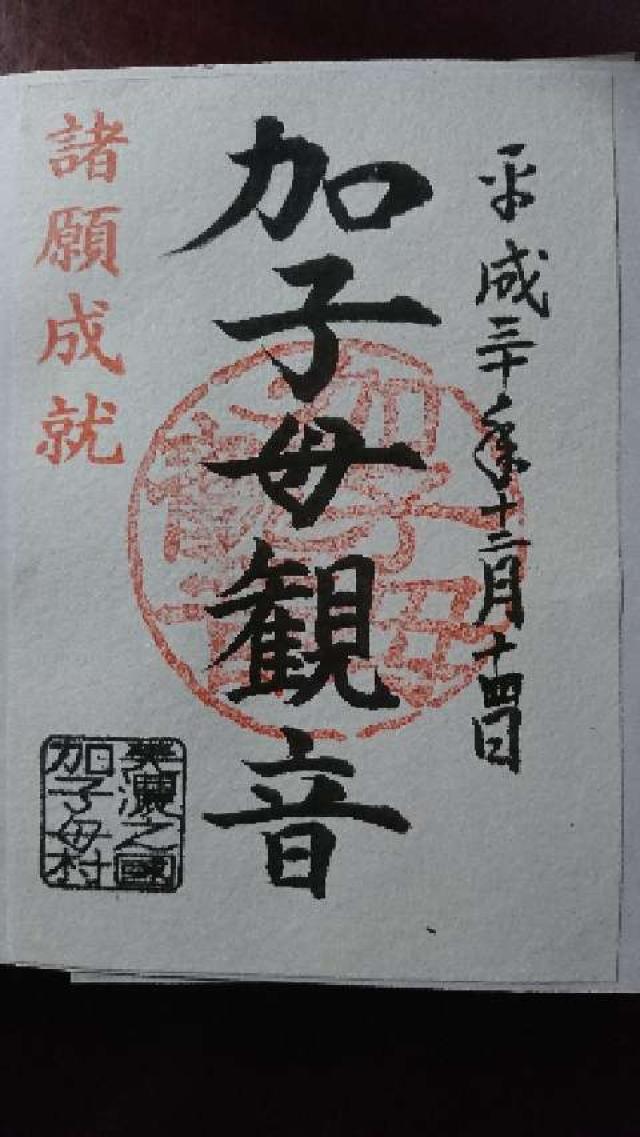 平成三十年十二月十四日
加子母観音
加子母
観音
諸願成就
美濃之國
加子母村